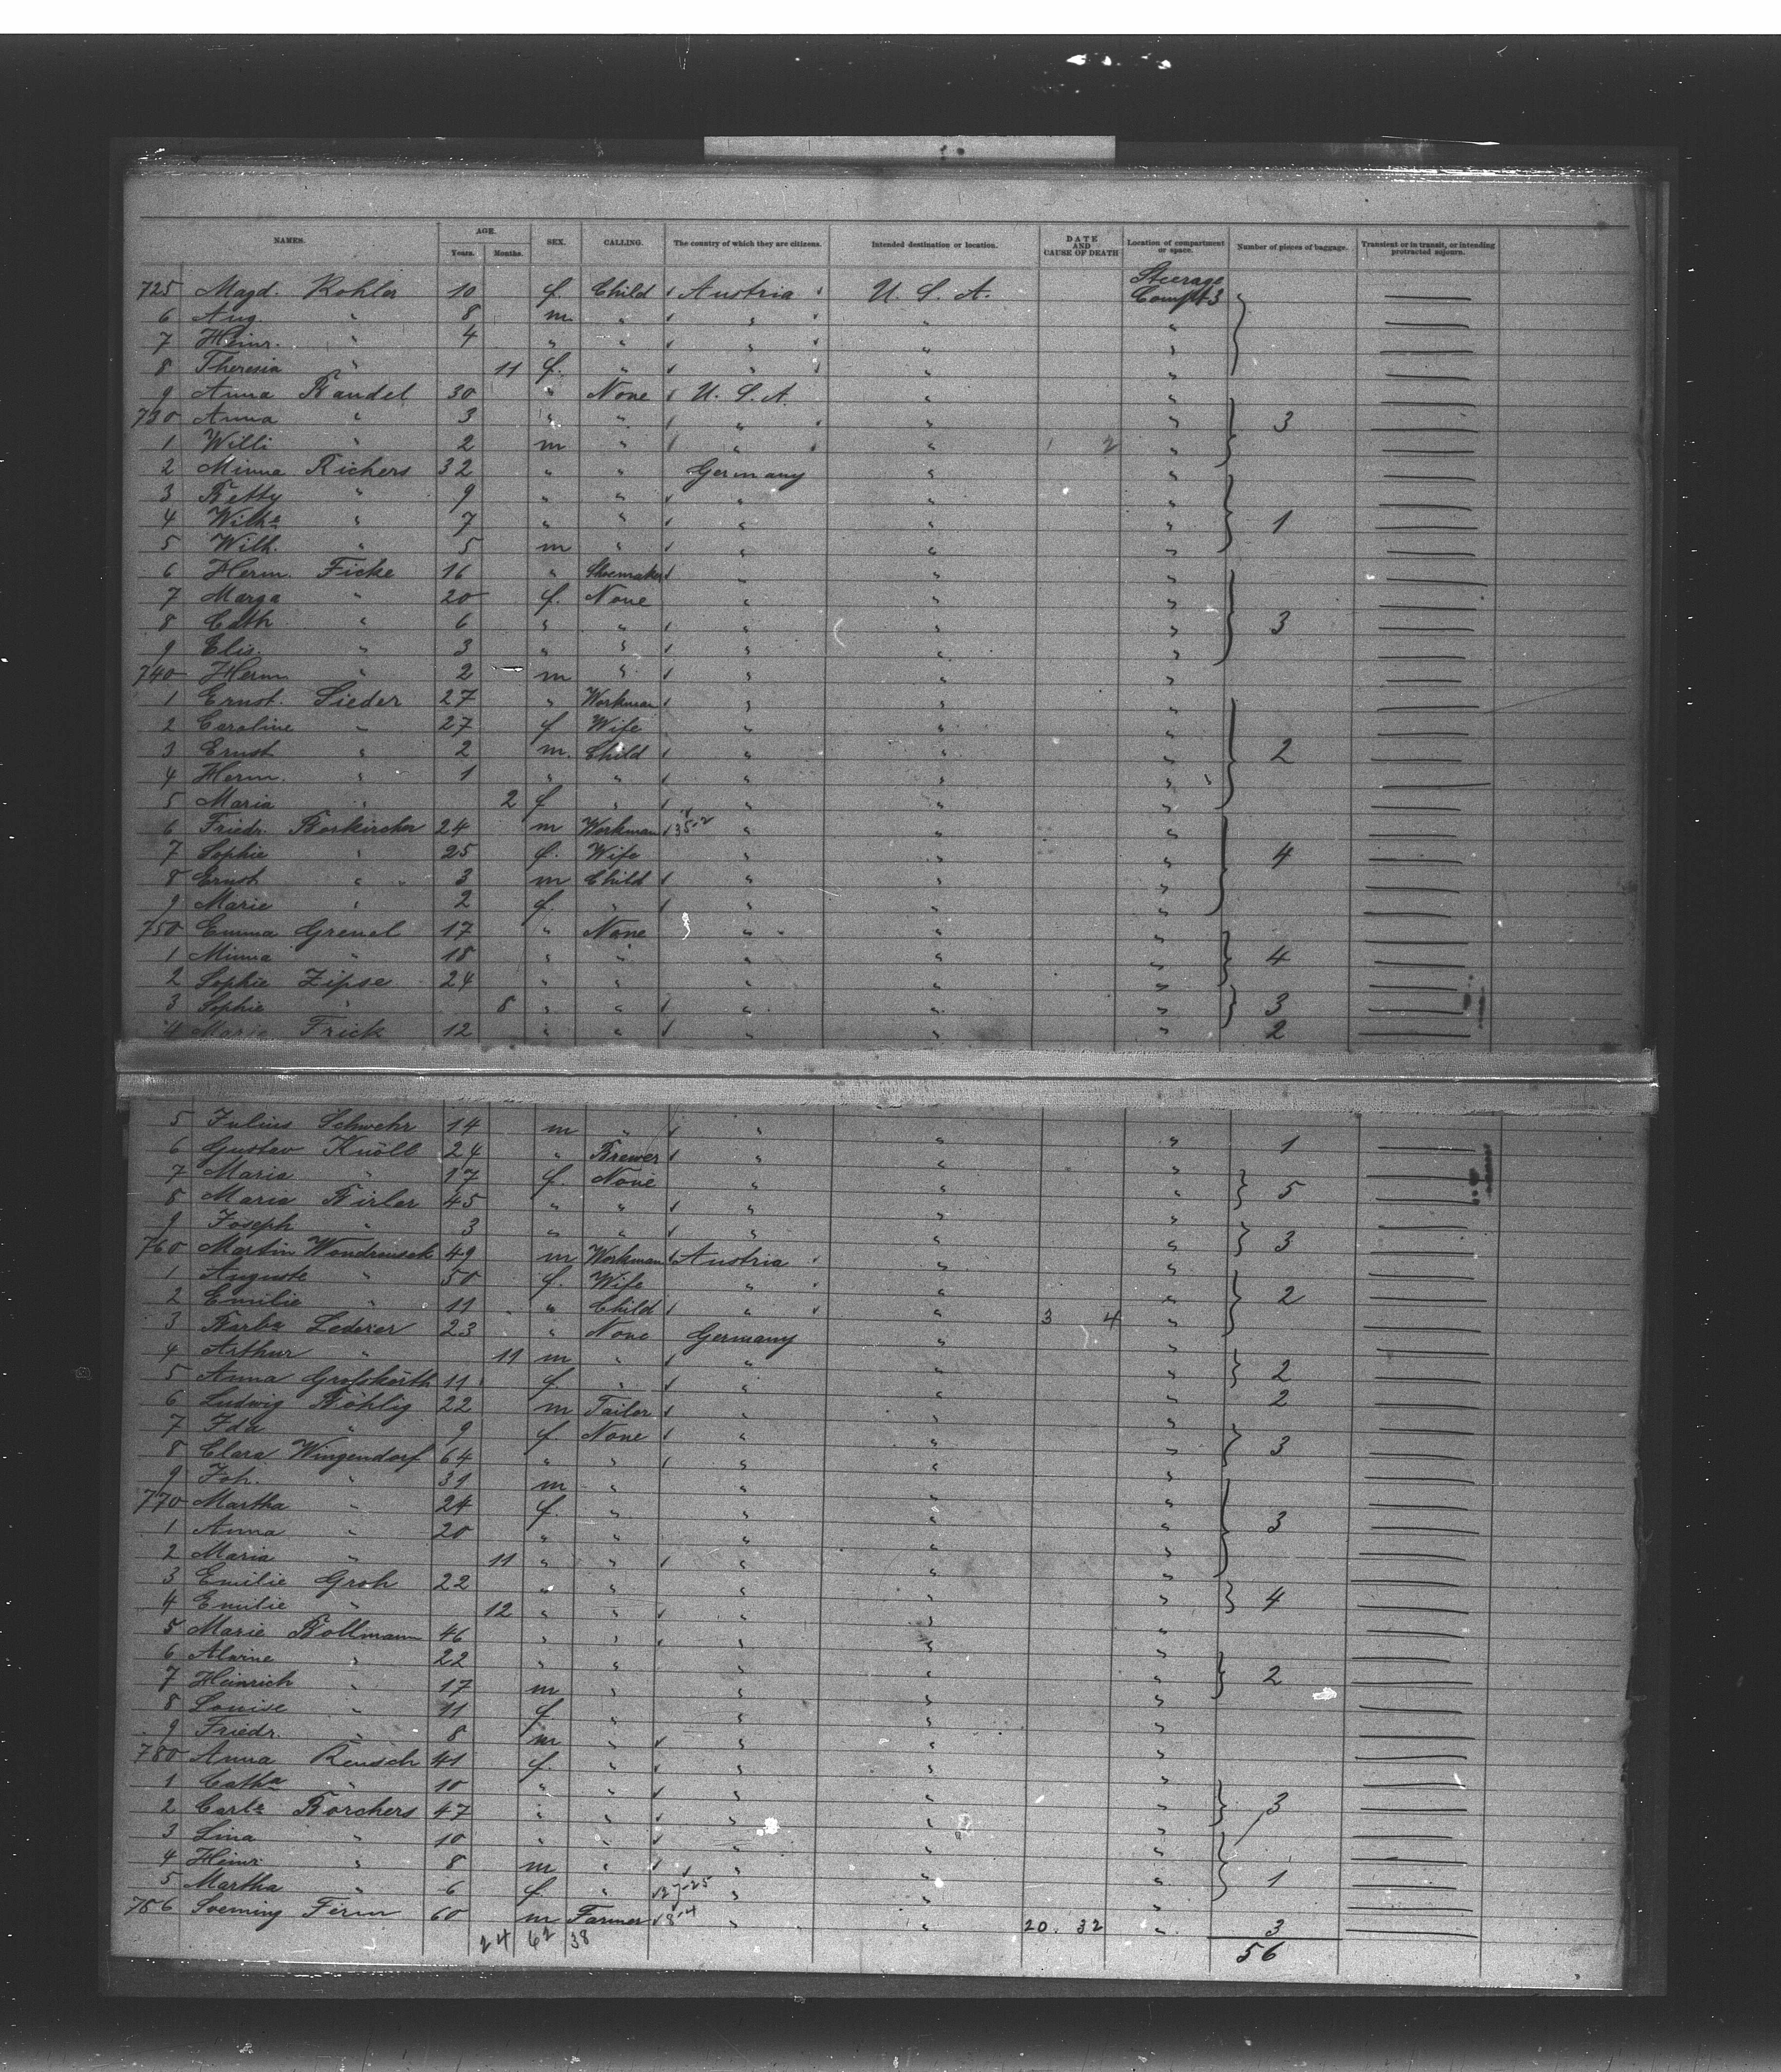 NAMES. AGE. Years. Months. SEX. CALLING. The country of which they are citizens. Intended destination or location. DATE AND CAUSE OF DEATH Location of compartment or space. Number of pieces of baggage. Transient or in transit, or intending protracted sojourn.
725 Magd. Kohler 10 f. Child Austria U. S. A. Steerage Compt 3
6 Aug. " 8 m " " " "
7 Heinr. " 4 " " " " "
8 Theresia " 11 f. " " " "
9 Anna Bandel 30 " None U. S. A. " "
730 Anna " 3 " " " " " 3
1 Willi " 2 m " " " 2 "
2 Minna Richers 32 " " Germany " "
3 Betty " 9 " " " " "
4 Wilhe " 7 " " " " " 1
5 Wilh. " 5 m " " " "
6 Herm. Ficke 16 " Shoemaker " " "
7 Marga " 20 f. None " " "
8 Cath " 6 " " " " " 3
9 Elis. " 3 " " " " "
740 Herm " 2 m " " " "
1 Ernst. Sieder 27 " Workman " " "
2 Caroline " 27 f Wife " " "
3 Ernst " 2 m. Child " " " 2
4 Herm. " 1 " " " " "
5 Maria " 2 f " " " "
6 Friedr. Borkircher 24 m Workman " " "
7 Sophie " 25 f. Wife " " " 4
8 Ernst " 3 m Child " " "
9 Marie " 2 f. " " " "
750 Emma Grenel 17 " None " " "
1 Minna " 18 " " " " " 4
2 Sophie Zipse 24 " " " " "
3 Sophie " 8 " " " " " 3
4 Marie Frick 12 " " " " " 2
5 Julius Schwehr 14 m " " " " 1
6 Gustav Knöll 24 " Brewer " " "
7 Maria " 17 f. None " " " 5
8 Maria Birler 45 " " " " "
9 Joseph " 3 " " " " " 3
760 Martin Wondrausek 49 m Workman Austria " "
1 Auguste " 50 f. Wife " " " 2
2 Emilie " 11 " Child " " 3 4 "
3 Barba Lederer 23 " None Germany " "
4 Arthur " 11 m " " " " 2
5 Anna 11 f. " " " " 2
6 Ludwig Böhlig 22 m Tailor " " "
7 Ida " 9 f. None " " " 3
8 Clara Wingendorf 64 " " " " "
9 Joh. " 31 m " " " "
770 Martha " 24 f. " " " " 3
1 Anna " 20 " " " " "
2 Maria " 11 " " " " "
3 Emilie Groh 22 " " " " " 4
4 Emilie " 12 " " " " "
5 Marie Bollmann 46 " " " " "
6 Alwine " 22 " " " " " 2
7 Heinrich " 17 m " " " "
8 Louise " 11 f " " " "
9 Friedr. " 8 m " " " "
780 Anna Reusch 41 f. " " " "
1 Catha " 10 " " " " " 3
2 Carla Borchers 47 " " " " "
3 Lina " 10 " " " " "
4 Heinr " 8 m " " " " 1
5 Martha " 6 f. " " " "
786 Ferm 60 m Farmer " " 20. 32 " 3
24 62 38 56